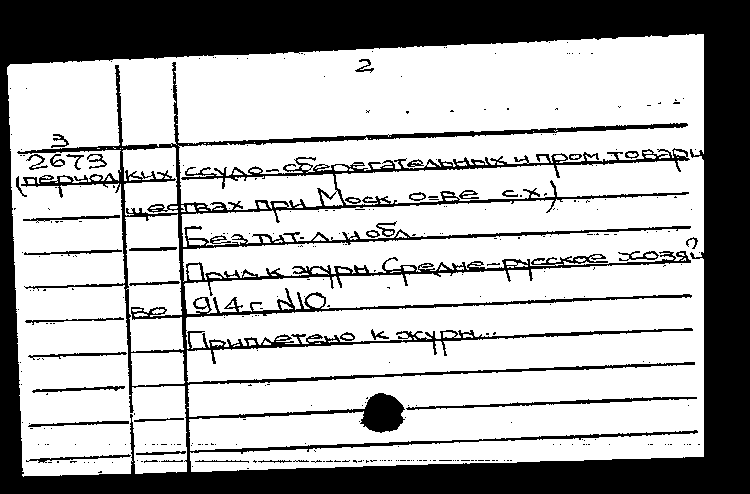 2
3
2673
(период) ких ссудо-сберегательных и пром. товари
ществах при Моск. о-ве с.х.)
Без тит. л. и обл.
Прил. к журн. Средне-русское хозяй
во 914 г. №10.
Приплетено к журн...